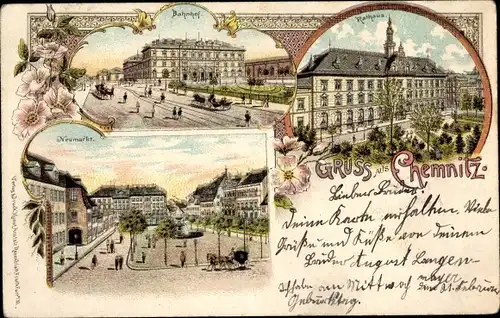 Bahnhof.
Rathaus.
Neumarkt.
GRUSS aus Chemnitz.
Lieber Bruder!
Deine Karte erhalten. Viele
Grüße und Küße von deinem
Bruder August Langen-
mayer
Ich habe am Mittwoch den 31.
Geburtstag.